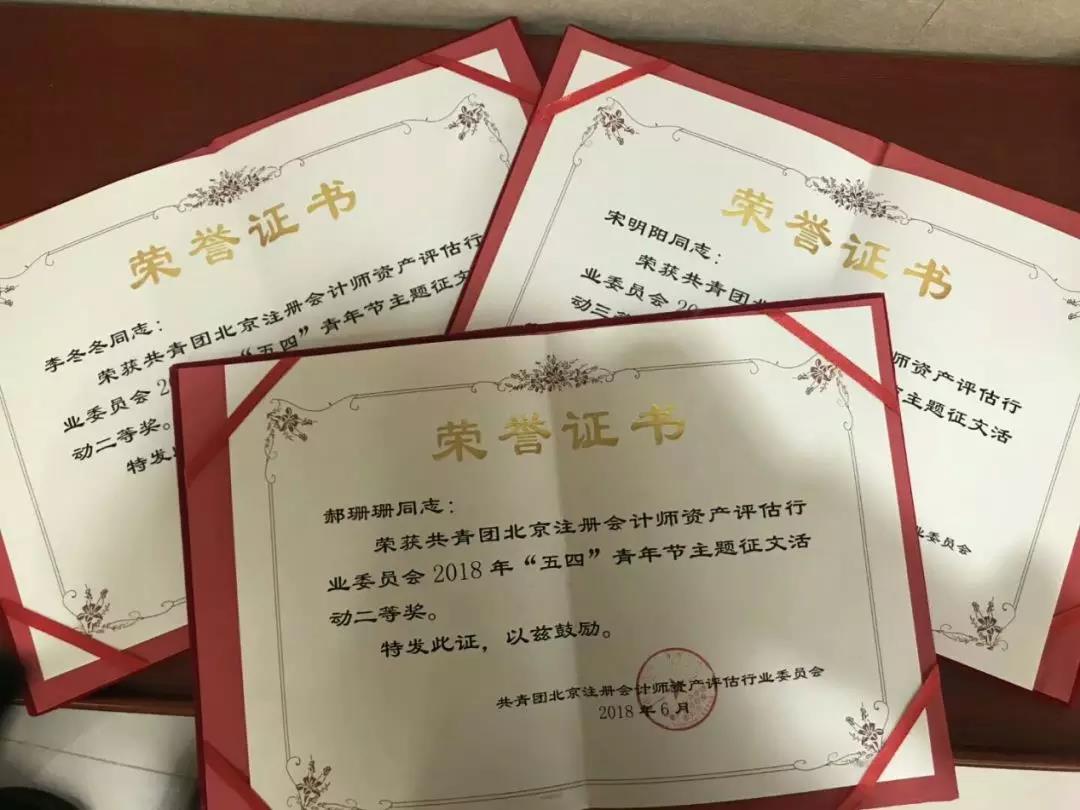 荣誉证书
李冬冬同志：
荣获共青团北京注册会计师资产评估行
业委员会2 “五四”青年节主题征文
动二等奖。
特发
荣誉证书
宋明阳同志：
荣获共青团北 师资产评估行
业委员会20 主题征文活
动三
业委员会
荣誉证书
郝珊珊同志：
荣获共青团北京注册会计师资产评估行
业委员会2018年“五四”青年节主题征文活
动二等奖。
特发此证，以兹鼓励。
共青团北京注册会计师资产评估行业委员会
2018年6月